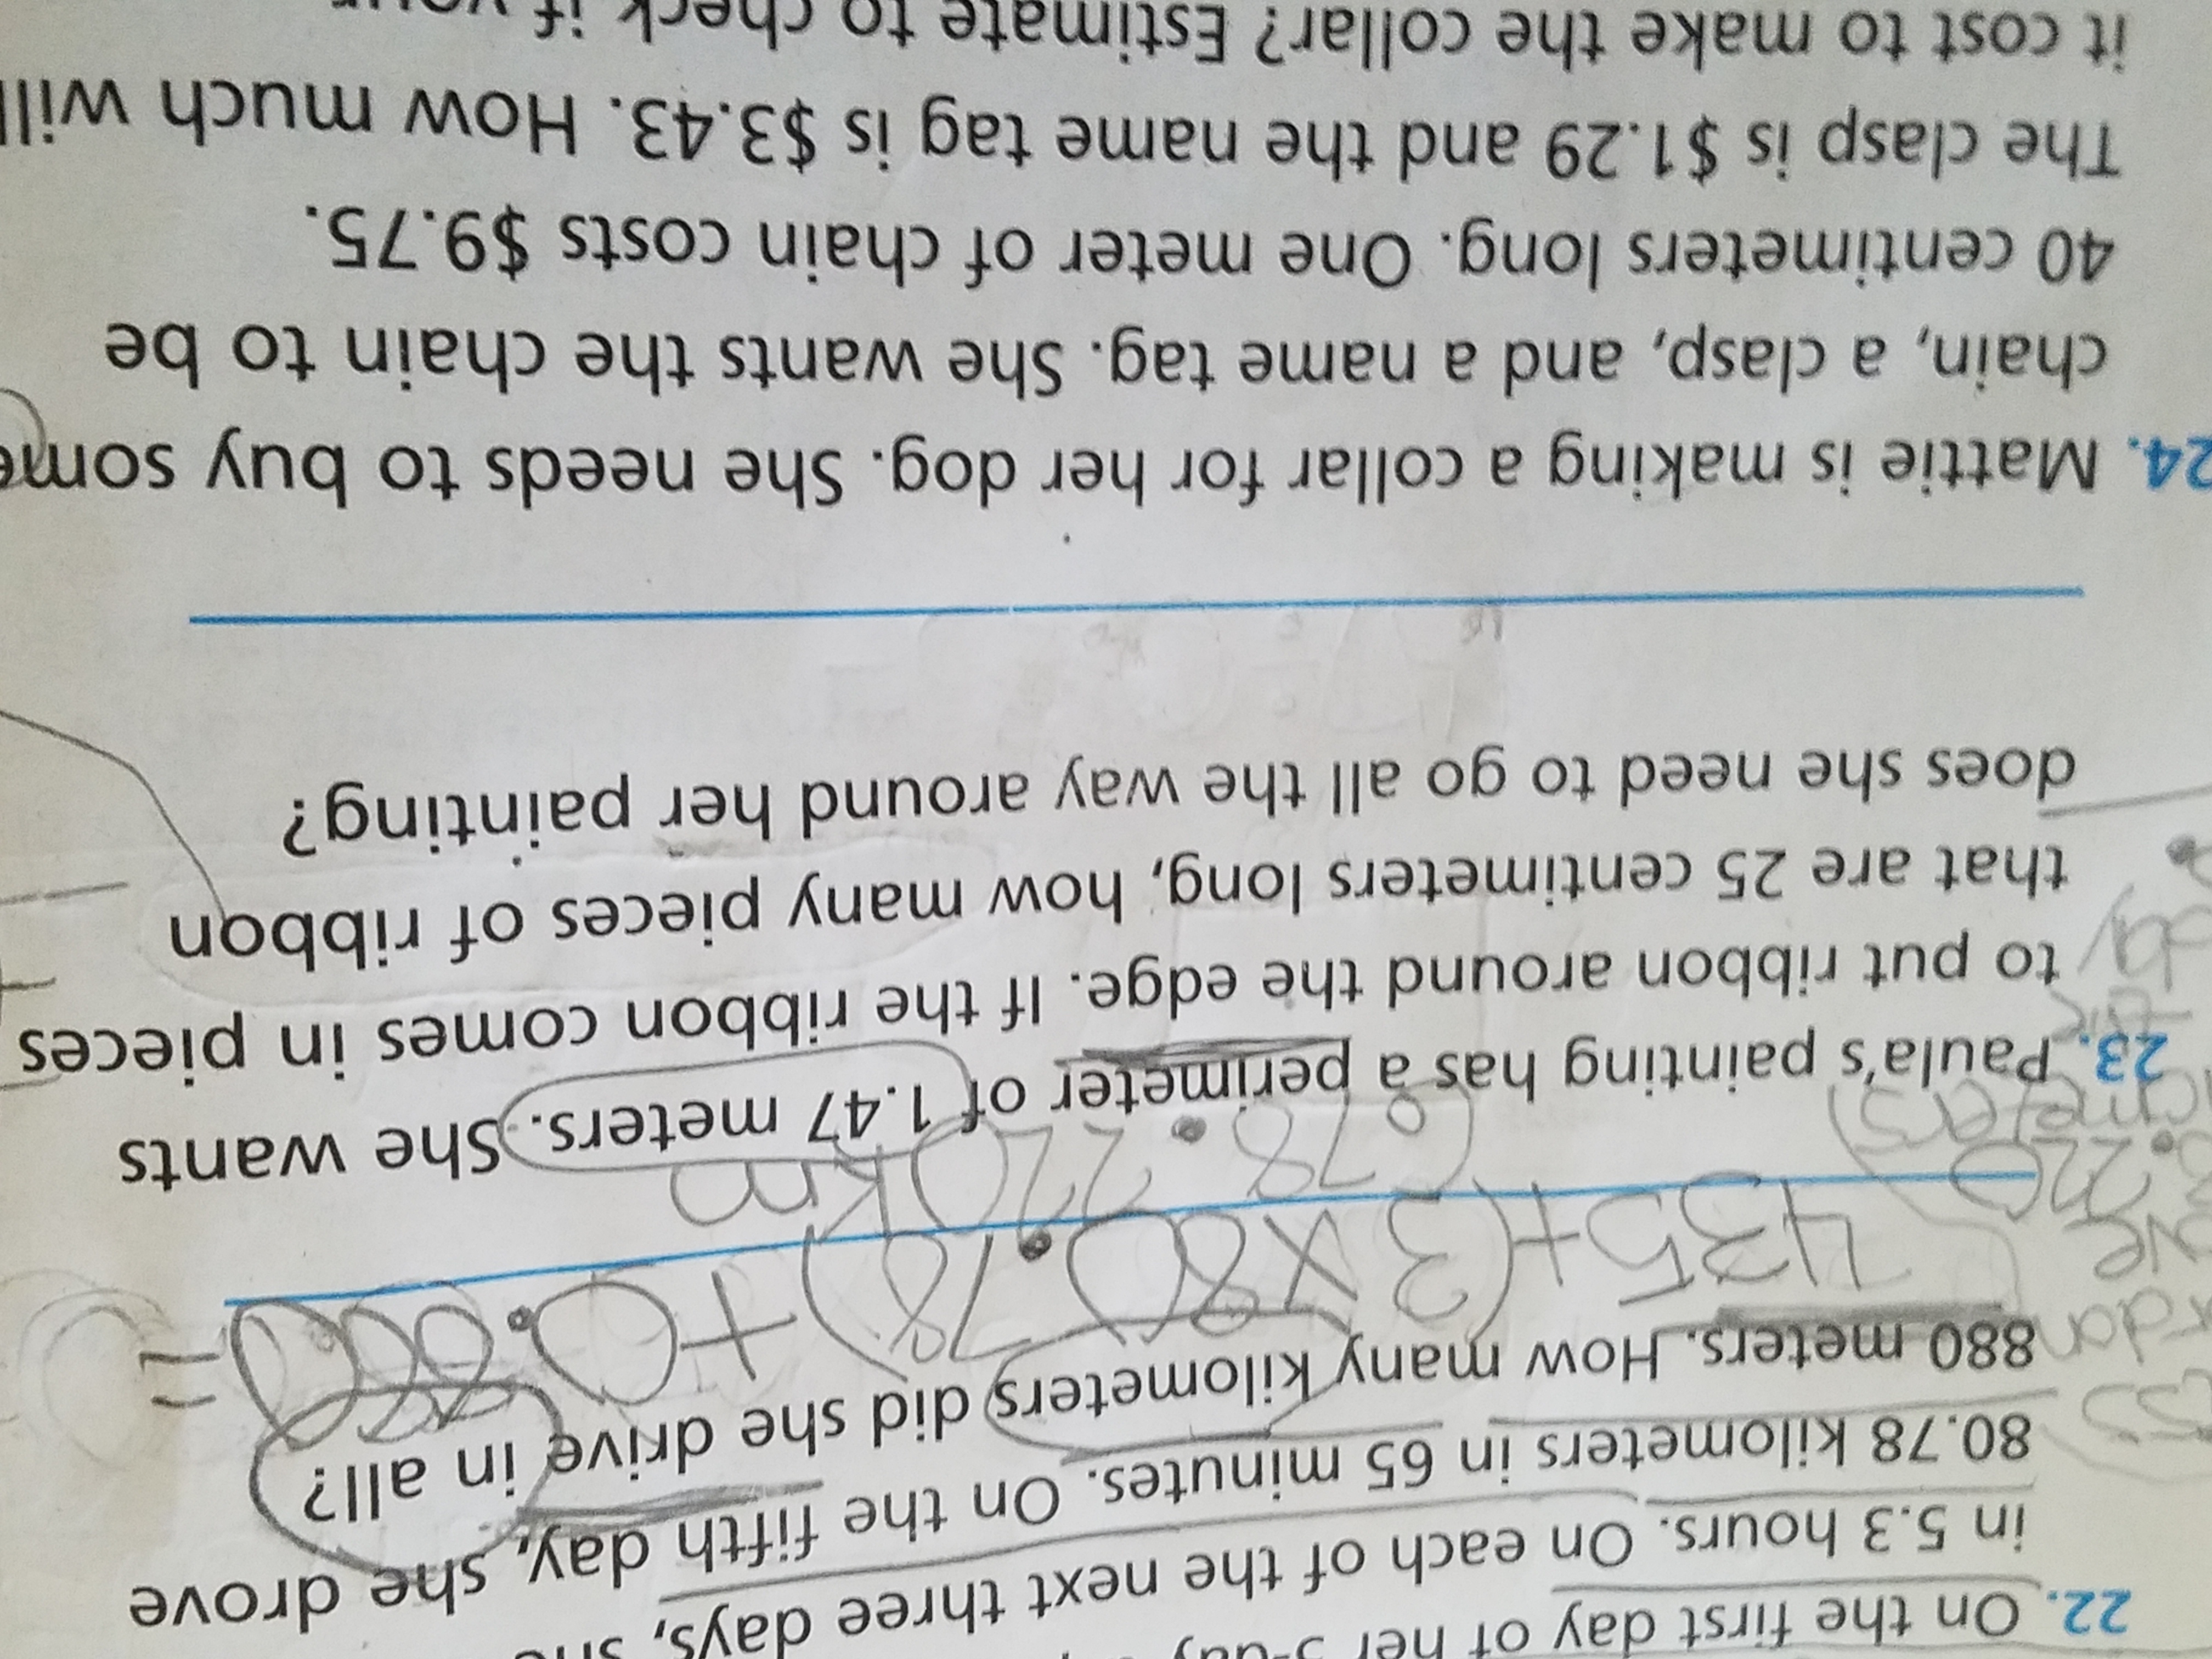 22. On the first day of her 5-day
in 5.3 hours. On each of the next three days, she
80.78 kilometers in 65 minutes. On the fifth day, she drove
880 meters. How many kilometers did she drive in all?
435+(3×80.78)+0.880=
.220 km
678
220
meters)
day
23. Paula's painting has a perimeter of 1.47 meters. She wants
to put ribbon around the edge. If the ribbon comes in pieces
that are 25 centimeters long, how many pieces of ribbon
does she need to go all the way around her painting?
24. Mattie is making a collar for her dog. She needs to buy some
chain, a clasp, and a name tag. She wants the chain to be
40 centimeters long. One meter of chain costs $9.75.
The clasp is $1.29 and the name tag is $3.43. How much will
it cost to make the collar? Estimate to check if your